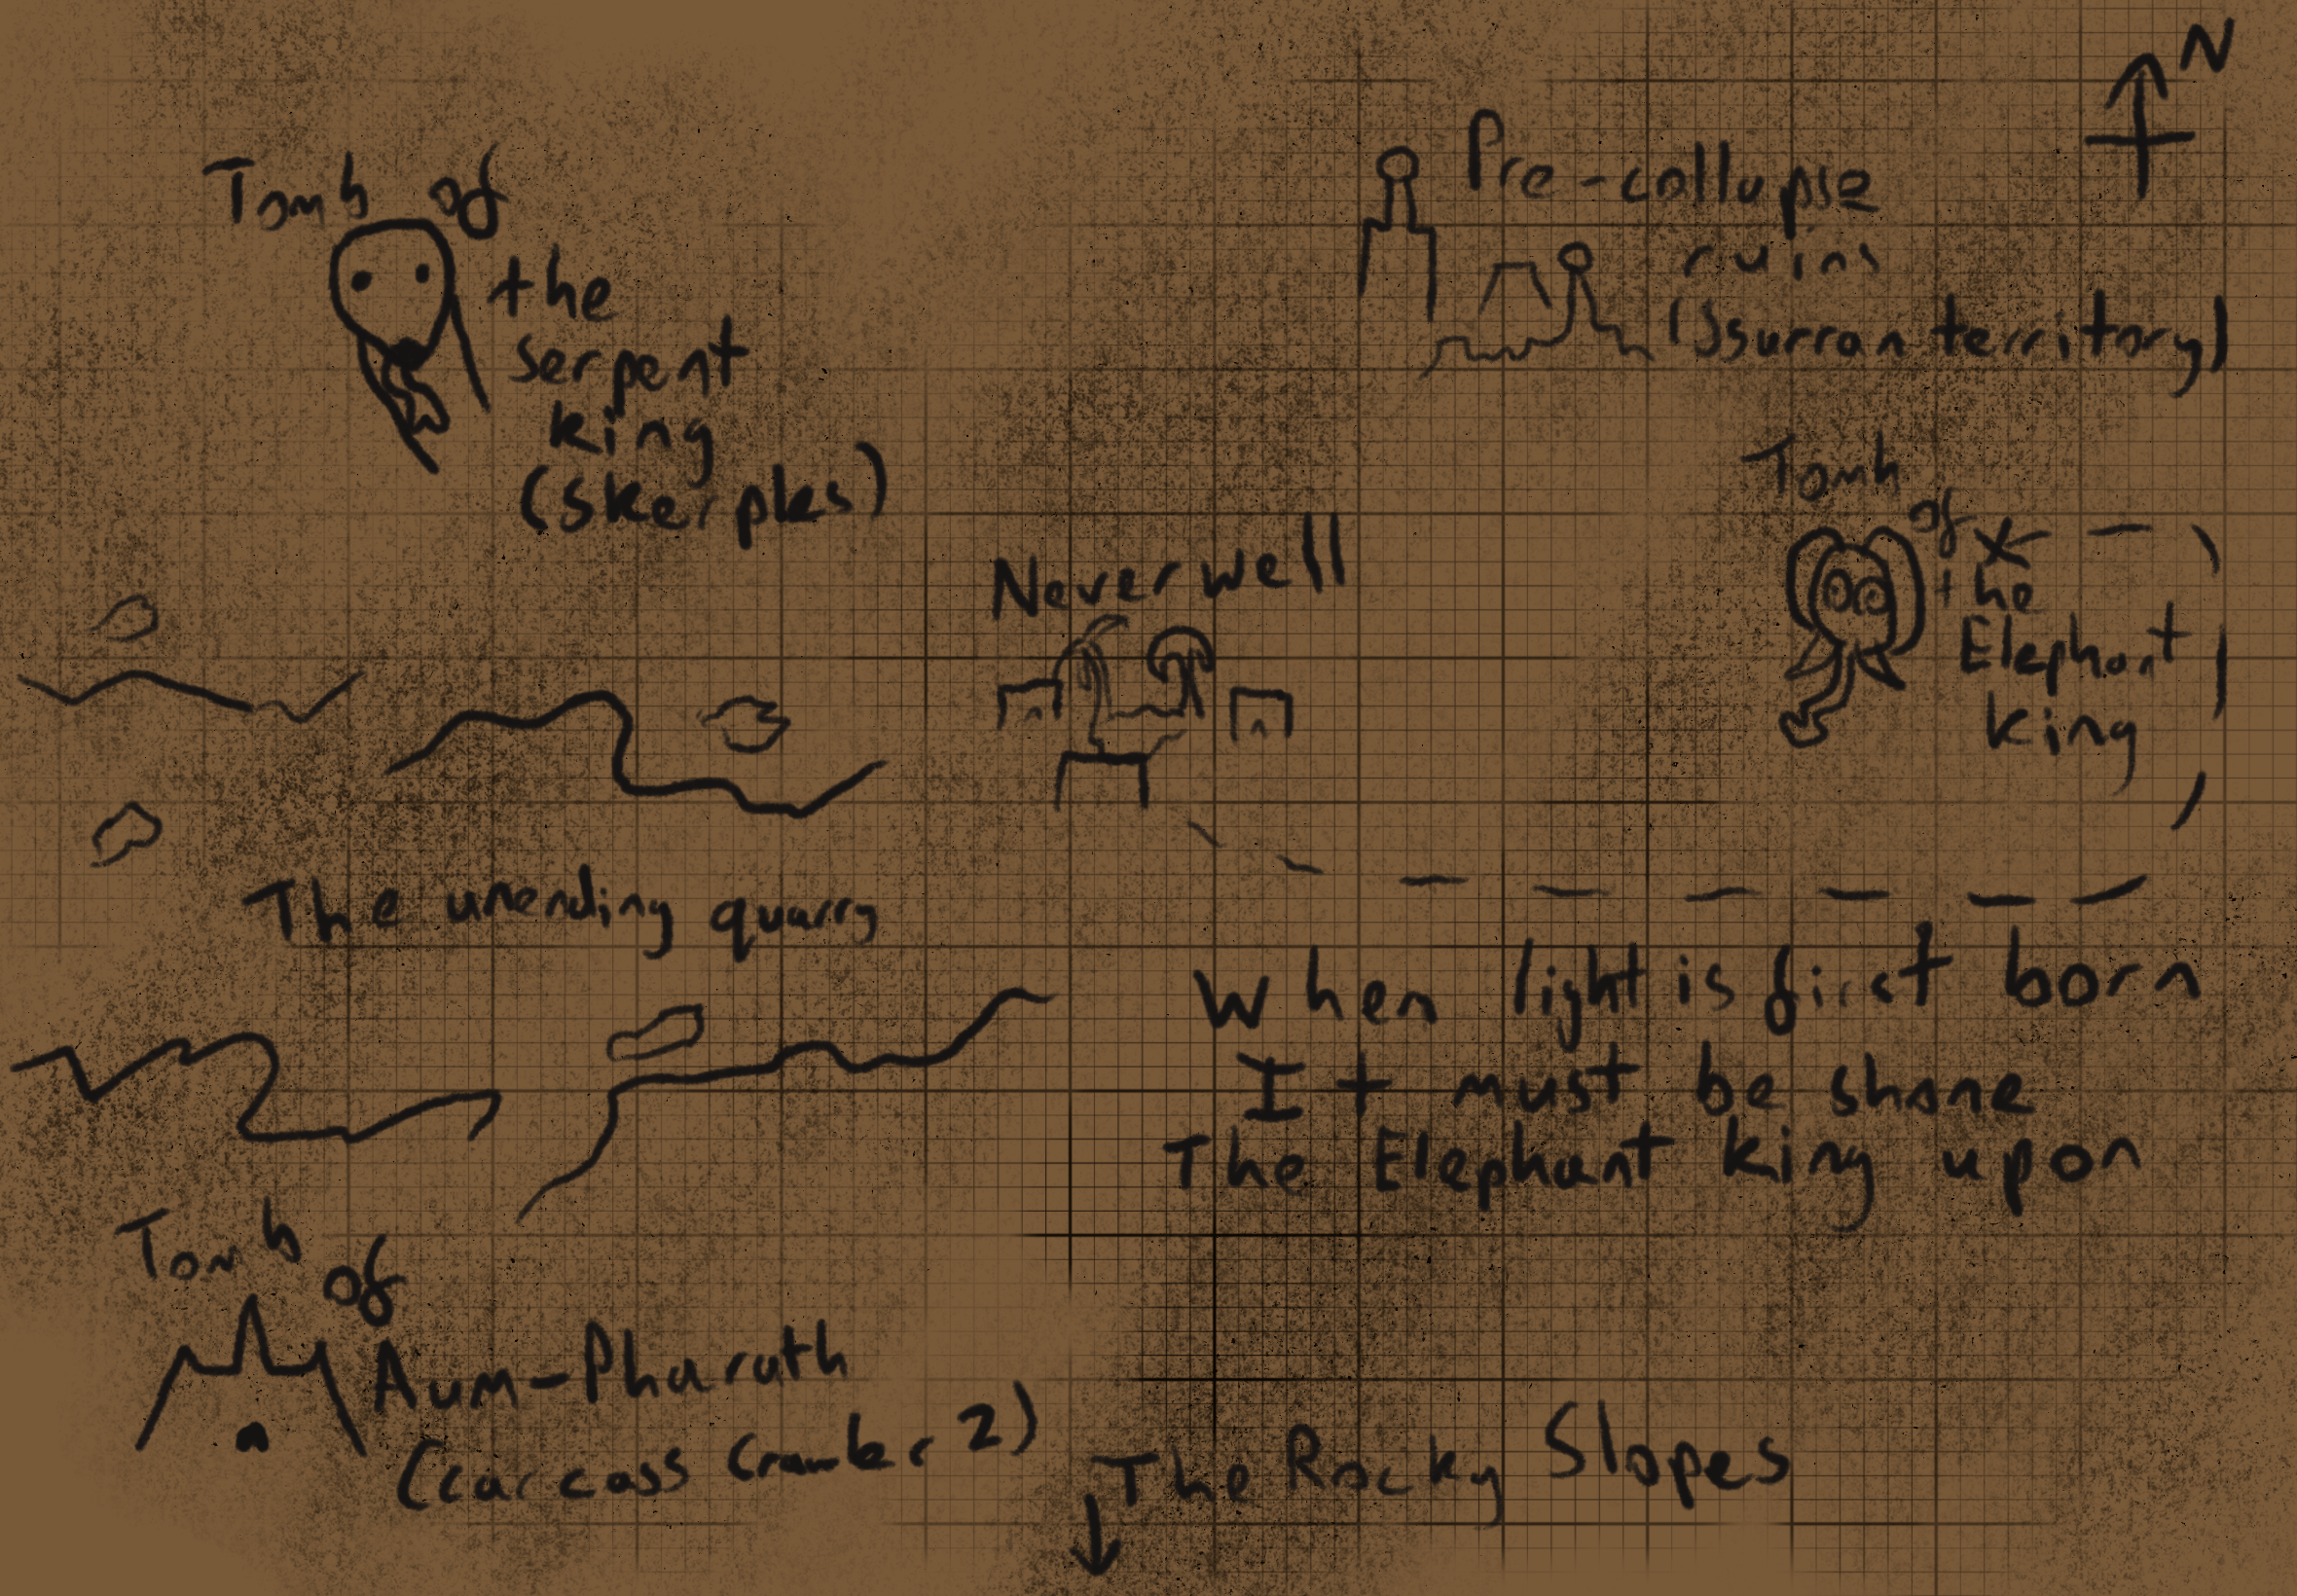 N
Tomb of
the
serpent
king
(skerples)
Pre-collapse
ruins
(Ssurran territory)
Tomb
of
the
Elephant
king
Neverwell
The unending quarry
When light is first born
It must be shone
The Elephant king upon
Tomb
of
Aum-Pharath
(carcass Crawler 2)
The Rocky Slopes